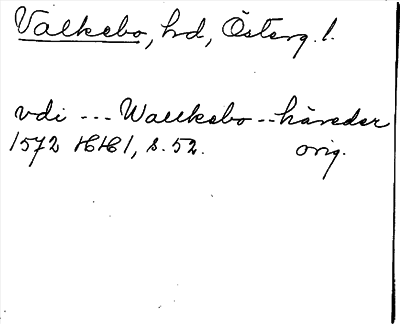 Valkebo, hrd, Österg. l.
vdi --- Wallkebo -- häreder
1572 HH 1, s. 52. orig.